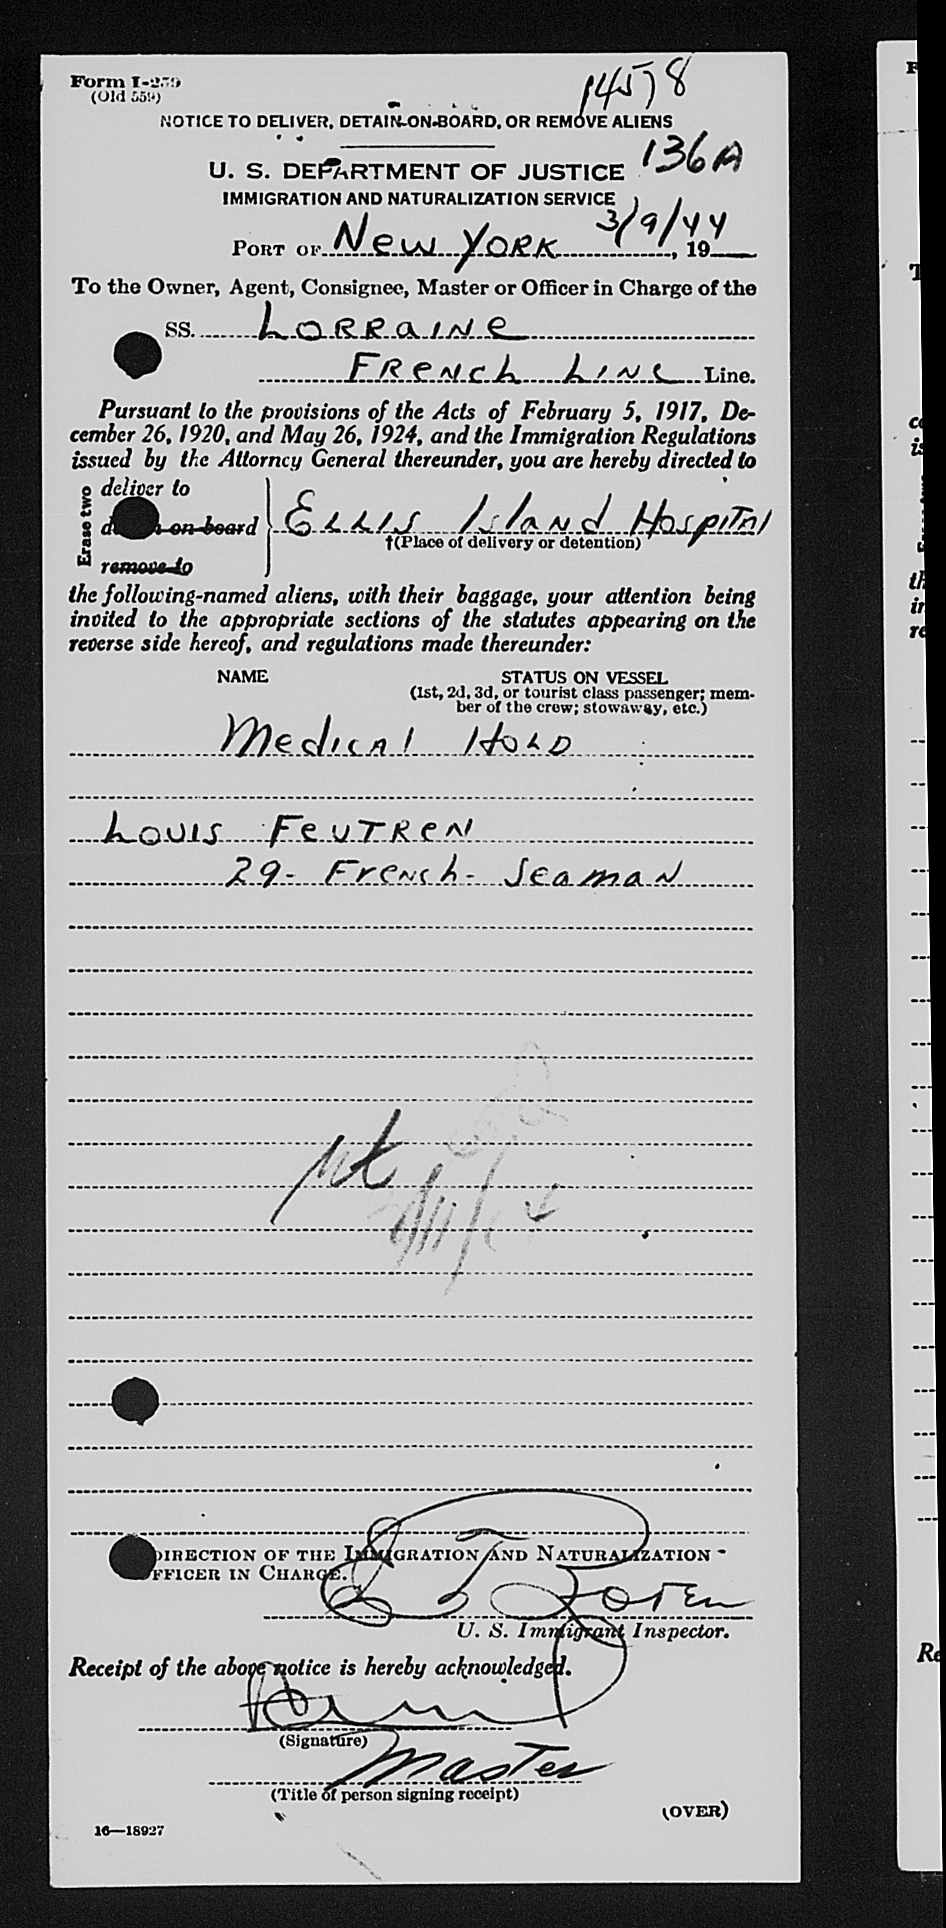 Form I-259
(Old 559)
14578
NOTICE TO DELIVER, DETAIN-ON-BOARD, OR REMOVE ALIENS
136A
U. S. DEPARTMENT OF JUSTICE
IMMIGRATION AND NATURALIZATION SERVICE
PORT OF New York 3/9/44, 19
To the Owner, Agent, Consignee, Master or Officer in Charge of the
SS. Lorraine
French Line Line.
Pursuant to the provisions of the Acts of February 5, 1917, De-
cember 26, 1920, and May 26, 1924, and the Immigration Regulations
issued by the Attorney General thereunder, you are hereby directed to
Erase two
deliver to
on-board
remove to
Ellis Island Hospital
†(Place of delivery or detention)
the following-named aliens, with their baggage, your attention being
invited to the appropriate sections of the statutes appearing on the
reverse side hereof, and regulations made thereunder:
NAME STATUS ON VESSEL
(1st, 2d, 3d, or tourist class passenger; mem-
ber of the crew; stowaway, etc.)
Medical Hold
Louis Feutren
29- French- Seaman
DIRECTION OF THE IMMIGRATION AND NATURALIZATION
OFFICER IN CHARGE.
U. S. Immigrant Inspector.
Receipt of the above notice is hereby acknowledged.
(Signature)
Master
(Title of person signing receipt)
(OVER)
16—18927